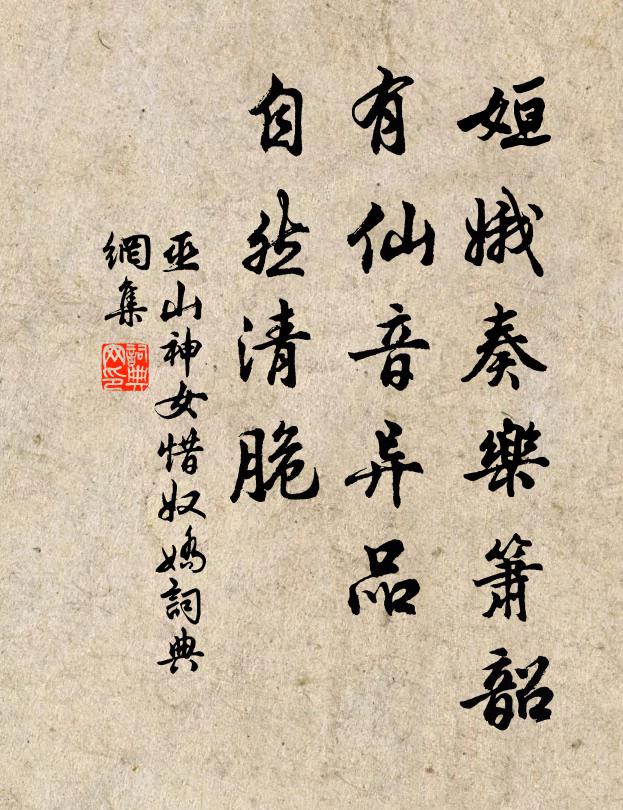 姮娥奏樂簫韶
有仙音异品
自然清脆
巫山神女惜奴嬌詞典
網集
詞典
网印